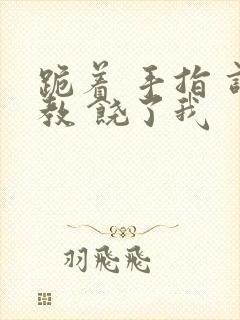 跪着 手指 
教 饶了我
羽飛飛